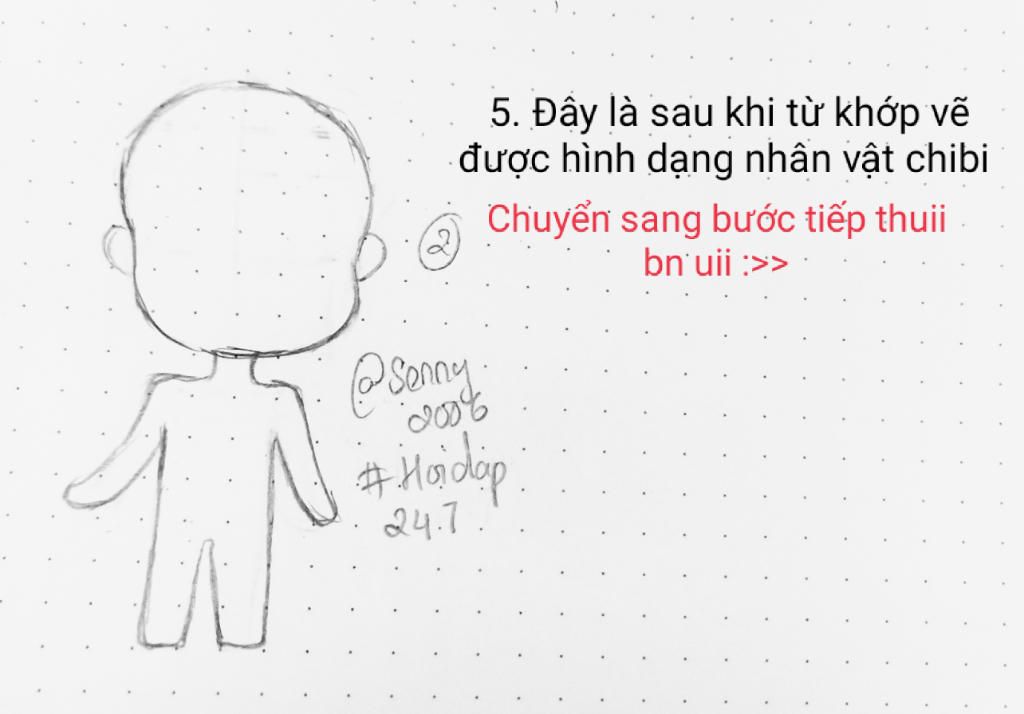 5. Đây là sau khi từ khớp vẽ
được hình dạng nhân vật chibi
Chuyển sang bước tiếp thuii
bn uii :>>
2
@Senny
2006
#Hoidap
24.7